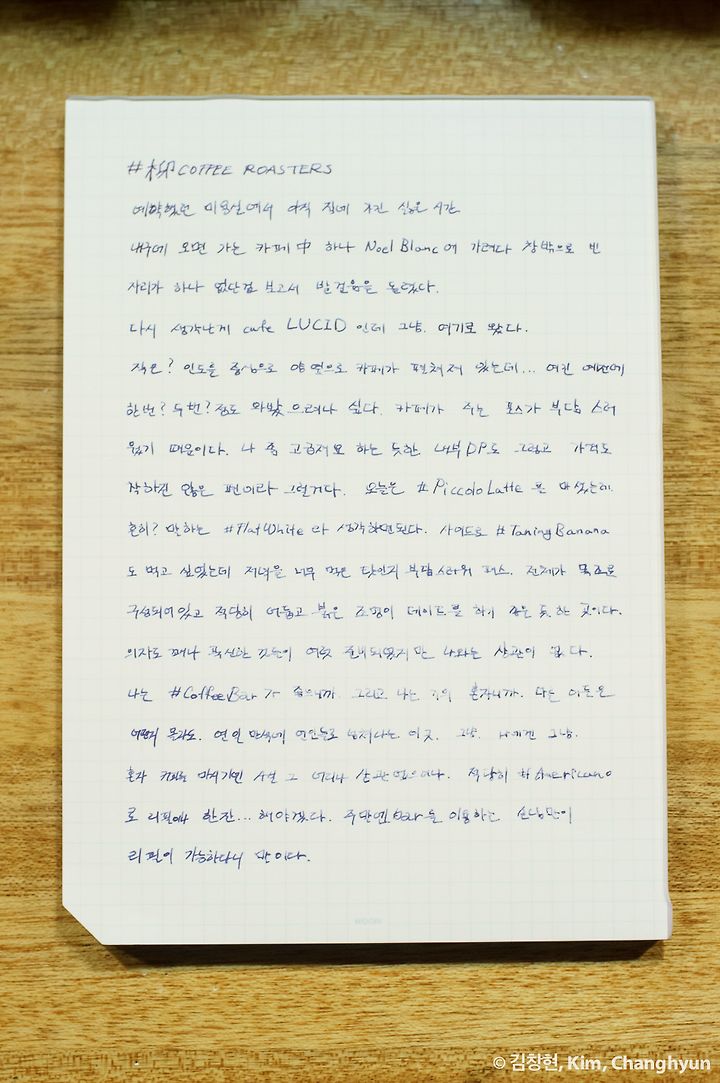 #柳 COFFEE ROASTERS
예약했던 미용실에서 아직 집에 가긴 싫은 시간
대구에 오면 가는 카페 中 하나 Noel Blanc에 가려다 창밖으로 빈
자리가 하나 없단걸 보고서 발걸음을 돌렸다.
다시 생각난게 cafe LUCID 인데 그냥. 여기로 왔다.
작은? 인도를 중심으로 양옆으로 카페가 펼쳐져 있는데... 여긴 예전에
한번? 두번? 정도 와봤으려나 싶다. 카페가 주는 포스가 부담스러
웠기 때문이다. 나 좀 고급져보 하는 듯한 내부DP도 그렇고 가격도
착하진 않은 편이라 그럴거다. 오늘은 #PiccoloLatte 를 마셨는데
흔히? 말하는 #FlatWhite 라 생각하면된다. 사이드로 #TaningBanana
도 먹고 싶었는데 저녁을 너무 먹은 탓인지 부담스러워 패스. 전체가 목조로
구성되어있고 적당히 어둡고 붉은 조명이 데이트를 하기 좋은 듯 한 곳이다.
의자도 꽤나 푹신한 것들이 여럿 준비되었지만 나와는 상관이 없다.
나는 #CoffeeBar가 좋으니까. 그리고 나는 거의 혼자니까. 다른 이들은
어떨지 몰라도. 연인 연인들로 넘쳐나는 이곳. 그냥. 나에겐 그냥.
혼자 커피를 마시기엔 사실 그 어디나 상관없으니까. 적당히 #Americano
로 리필해 한잔... 해야겠다. 주말엔 bar를 이용하는 손님만이
리필이 가능하다니 말이다.
© 김창현, Kim, Changhyun